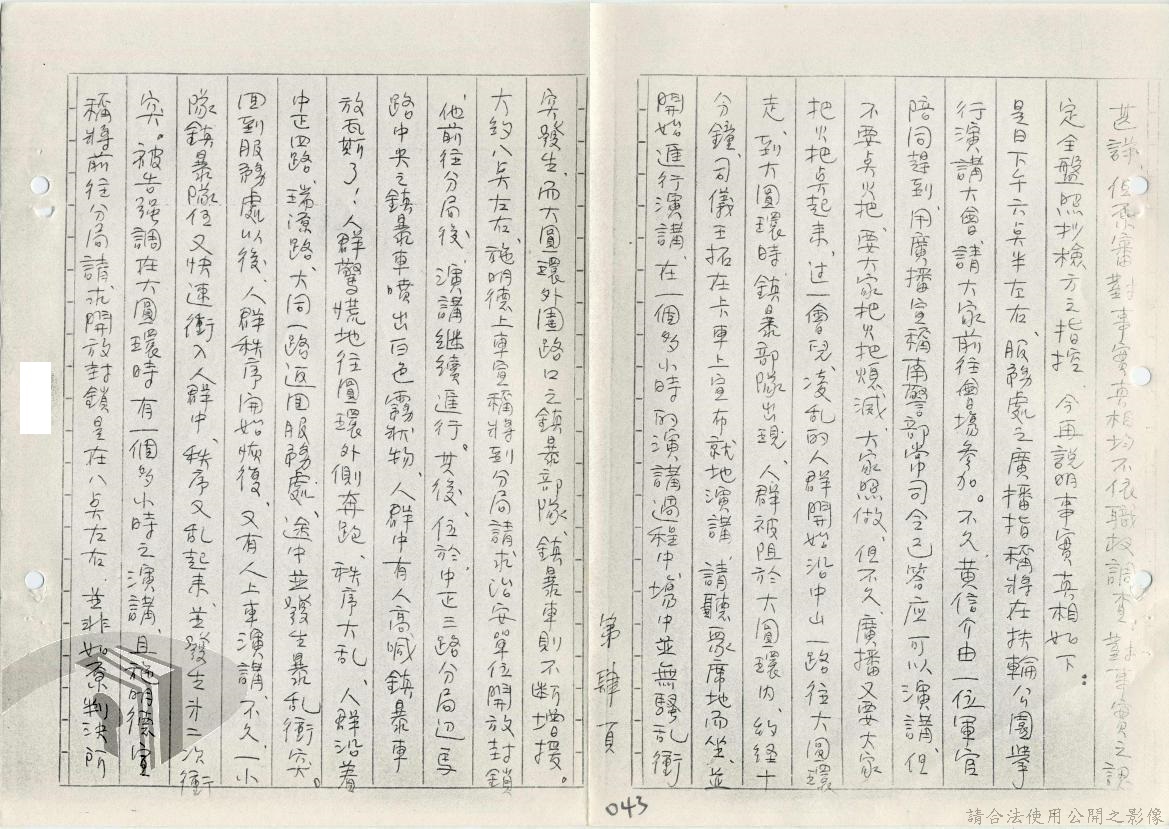 甚詳，但原審對事實真相均不依職權調查，對事實之認
定全盤照抄檢方之指控，今再說明事實真相如下：
是日下午六点半左右，服務處之廣播指稱將在扶輪公園舉
行演講大會，請大家前往會場參加。不久，黃信介由一位軍官
陪同趕到，用廣播宣稱南警部常司令已答应可以演講，但
不要点火把，要大家把火把熄滅，大家照做，但不久，廣播又要大家
把火把点起來，过一會兒凌乱的人群開始沿中山一路往大圓環
走，到大圓環時，鎮暴部隊出現，人群被阻於大圓環內，約経十
分鐘，司儀王拓在卡車上宣布就地演講，請聽眾席地而坐，並
開始進行演講，在一個多小時的演講過程中，場中並無騷乱衝
第肆頁
突發生，而大圓環外圍路口之鎮暴部隊、鎮暴車則不断增援。
大約八点左右，施明德上車宣稱將到分局請求治安單位開放封鎖
，他前往分局後，演講継續進行。其後，位於中正三路分局边馬
路中央之鎮暴車噴出白色霧狀物，人群中有人高喊鎮暴車
放瓦斯了！人群驚慌地往圓環外側奔跑，秩序大乱，人群沿着
中正四路、瑞源路、大同一路返回服務處，途中並發生暴乱衝突。
回到服務處以後，人群秩序開始恢復，又有人上車演講，不久，一小
隊鎮暴隊伍又快速衝入人群中，秩序又乱起來，並發生第二次衝
突。被告強調在大圓環時有一個多小時之演講，且施明德宣
稱將前往分局請求開放封鎖是在八点左右，並非如原判決所
043
請合法使用公開之影像